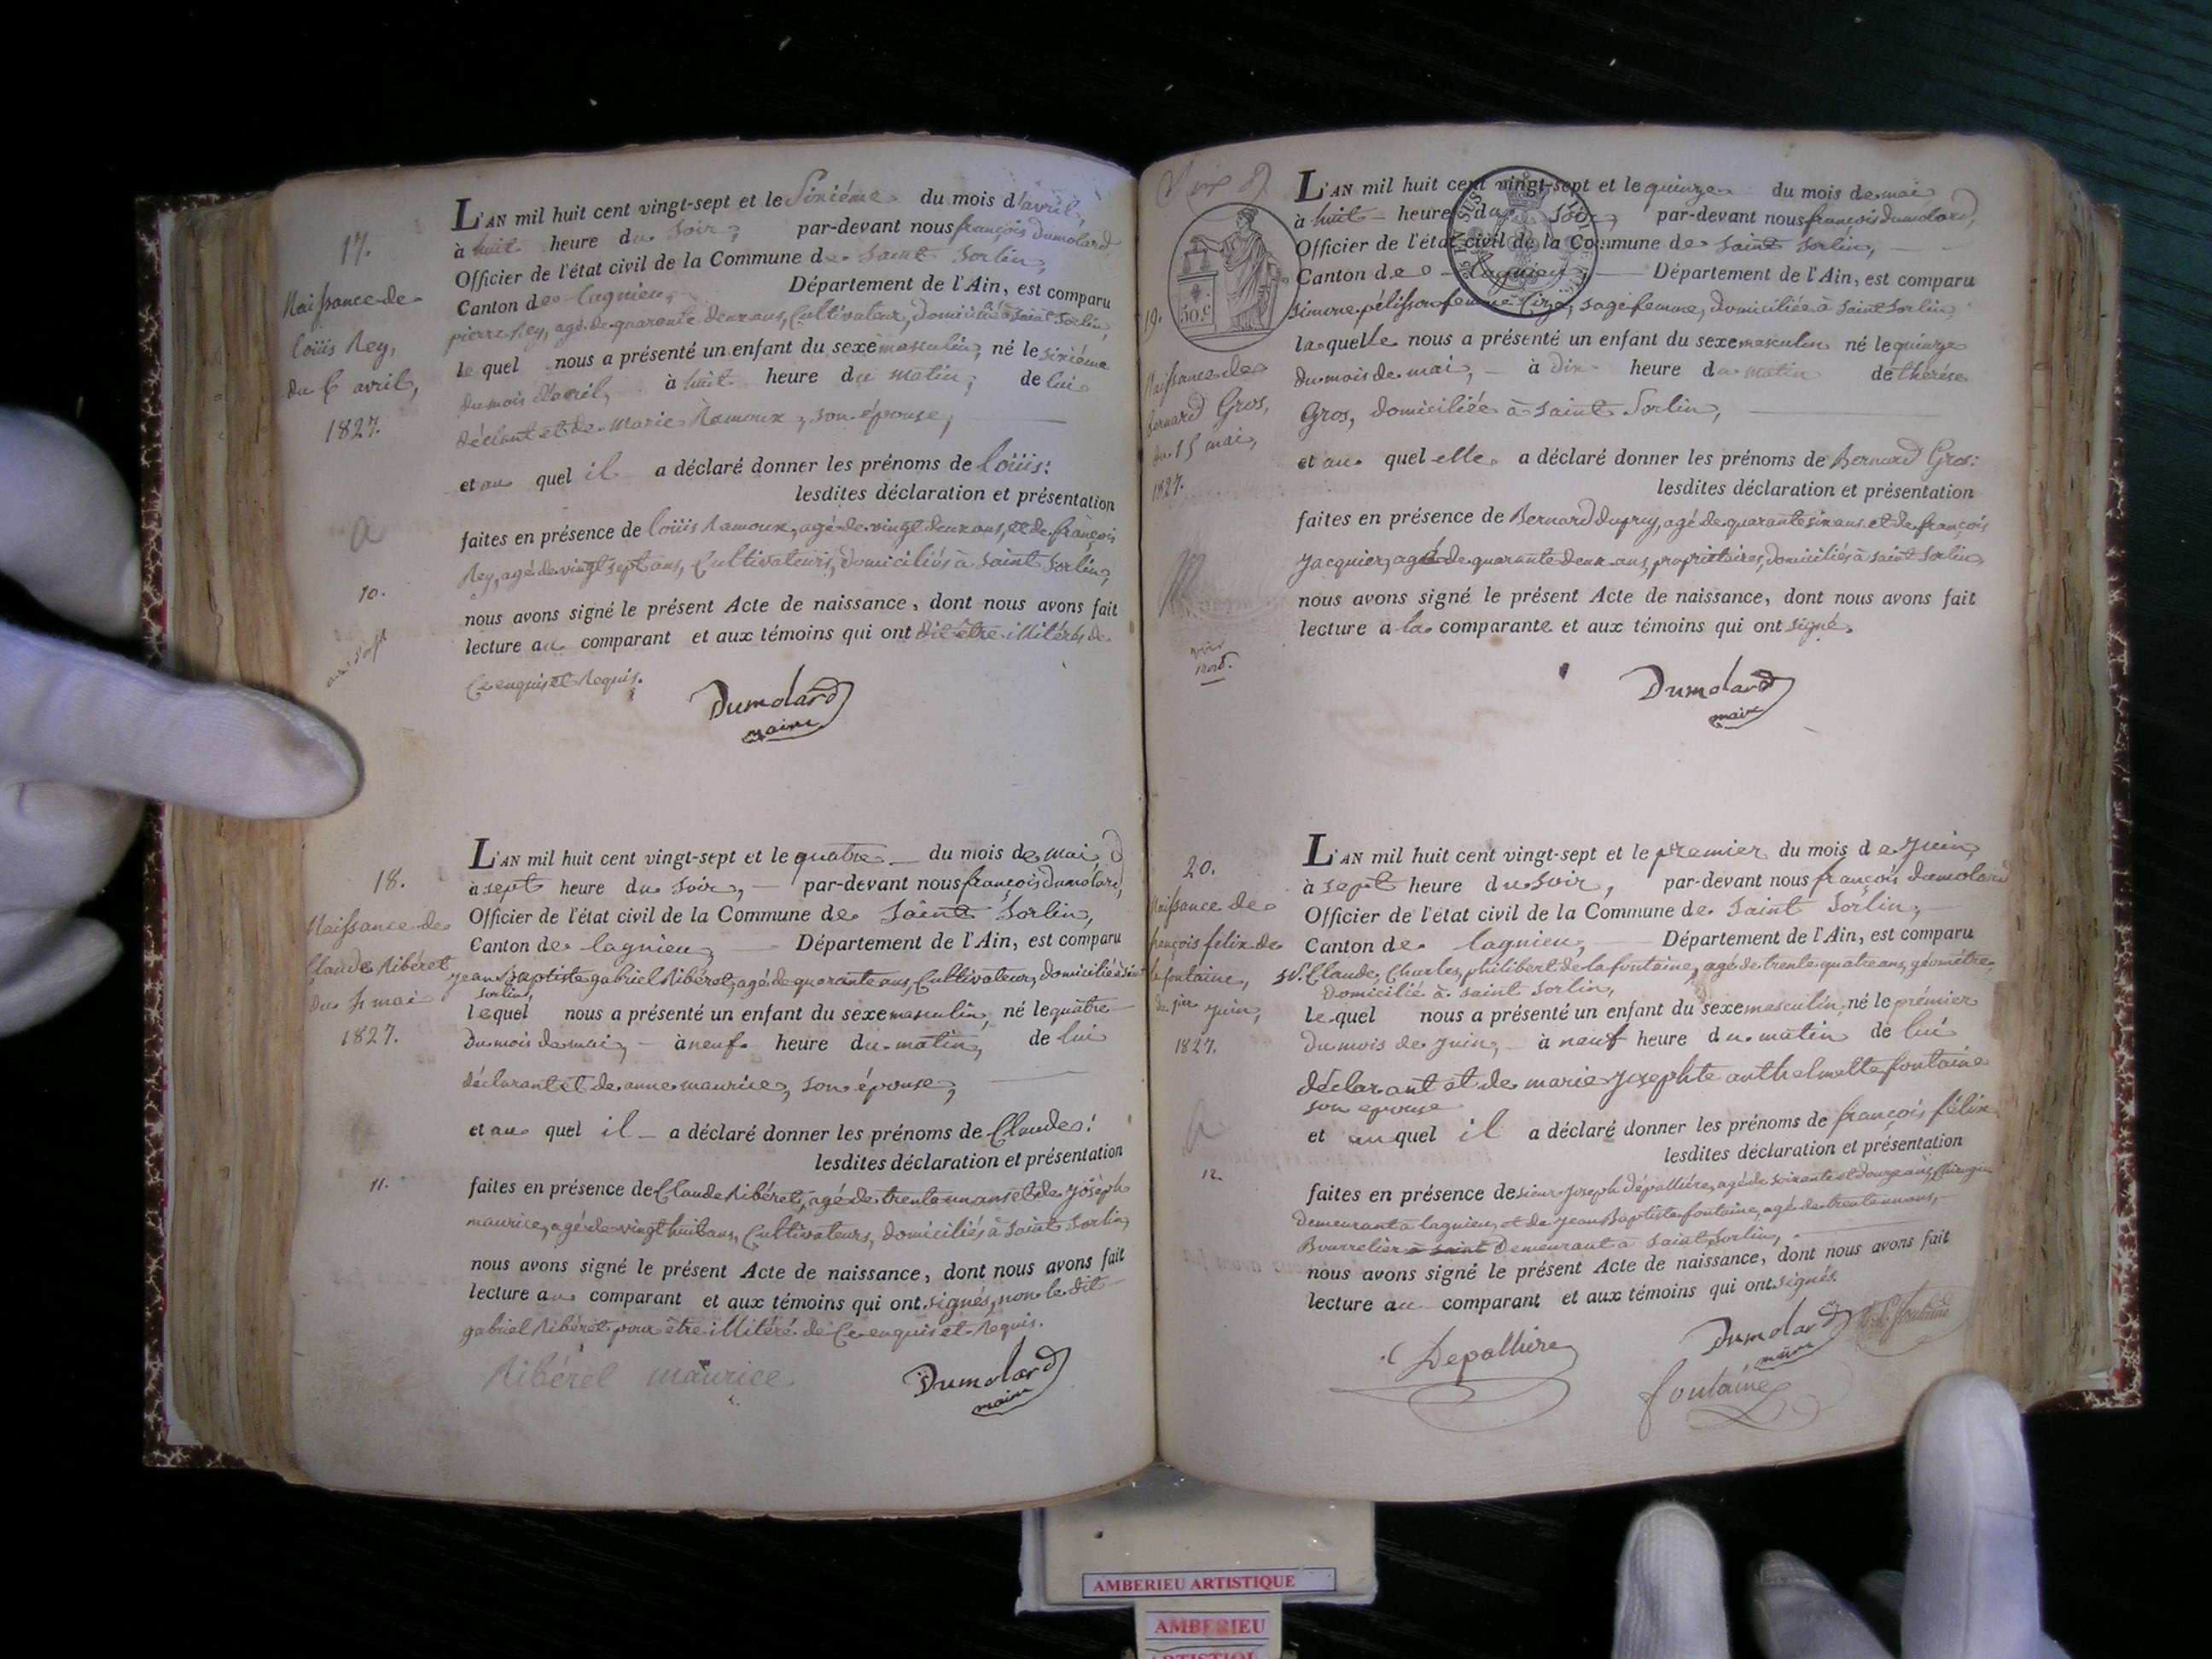 17.
Naissance de
loüis Rey,
du 6 avril,
1827.
a
10.
L'AN mil huit cent vingt-sept et le Sixiéme du mois d'avril,
à huit heure du soir, par-devant nous françois dumolard,
Officier de l'état civil de la Commune de Saint Sorlin,
Canton de lagnieu, Département de l'Ain, est comparu
pierre Rey, agé de quarante deux ans, Cultivateur, domicilié à Saint Sorlin,
le quel nous a présenté un enfant du sexe masculin, né le sixiéme
du mois d'avril, à huit heure du matin, de lui
déclarant et de Marie Ramoux, son épouse,
et au quel il a déclaré donner les prénoms de loüis:
lesdites déclaration et présentation
faites en présence de loüis Ramoux, agé de vingt deux ans, et de françois
Rey, agé de vingt sept ans, Cultivateurs, domiciliés à Saint Sorlin,
nous avons signé le présent Acte de naissance, dont nous avons fait
lecture au comparant et aux témoins qui ont dit être illitérés de
Ce enquis et Requis.
Dumolard
maire
18.
Naissance de
Claude Ribéret
du 4 mai
1827.
11.
L'AN mil huit cent vingt-sept et le quatre du mois de mai,
à sept heure du soir, par-devant nous françois dumolard,
Officier de l'état civil de la Commune de Saint Sorlin,
Canton de lagnieu, Département de l'Ain, est comparu
jean Baptiste gabriel Ribéret, agé de quarante ans, Cultivateur, domicilié à Saint
Sorlin,
le quel nous a présenté un enfant du sexe masculin, né le quatre
du mois de mai, à neuf heure du matin, de lui
déclarant et de anne maurice, son épouse,
et au quel il a déclaré donner les prénoms de Claude:
lesdites déclaration et présentation
faites en présence de Claude Ribéret, agé de trente un ans et de joseph
maurice, agé de vingt huit ans, Cultivateurs, domiciliés à Saint Sorlin,
nous avons signé le présent Acte de naissance, dont nous avons fait
lecture au comparant et aux témoins qui ont signés, non le dit
gabriel Ribéret pour être illitéré de Ce enquis et Requis.
Ribéret maurice
Dumolard
maire
19.
50 c
Naissance de
Bernard Gros,
du 15 mai,
1827.
voir
Nord.
L'AN mil huit cent vingt-sept et le quinze du mois de mai
à huit heure du soir, par-devant nous françois dumolard,
Officier de l'état civil de la Commune de Saint Sorlin,
Canton de lagnieu, Département de l'Ain, est comparu
Simone pélisson femme Cirge, sage femme, domiciliée à Saint Sorlin
laquelle nous a présenté un enfant du sexe masculin né le quinze
du mois de mai, à dix heure du matin de thérése
Gros, domiciliée à Saint Sorlin,
et au quel elle a déclaré donner les prénoms de Bernard Gros:
lesdites déclaration et présentation
faites en présence de Bernard dupuy, agé de quarante six ans et de françois
jacquier, agé de quarante deux ans, propriétaires, domiciliés à Saint Sorlin,
nous avons signé le présent Acte de naissance, dont nous avons fait
lecture a la comparante et aux témoins qui ont signé.
Dumolard
maire
20.
Naissance de
françois felix de
la fontaine,
du 1er juin,
1827.
12.
L'AN mil huit cent vingt-sept et le premier du mois de juin,
à sept heure du soir, par-devant nous françois dumolard
Officier de l'état civil de la Commune de Saint Sorlin,
Canton de lagnieu, Département de l'Ain, est comparu
Sr. Claude, Charles, philibert de la fontaine, agé de trente quatre ans, géométre,
domicilié à Saint Sorlin,
le quel nous a présenté un enfant du sexe masculin, né le prémier
du mois de juin, à neuf heure du matin de lui
déclarant et de marie josephte anthelmette fontaine
son epouse
et au quel il a déclaré donner les prénoms de françois félix
lesdites déclaration et présentation
faites en présence de sieur joseph dépalliére, agé de soixante et douze ans, Chirurgien
Demeurant a lagnieu, et de jean Baptiste fontaine, agé de trente un ans,
Bourrelier à saint Demeurant a Saint Sorlin,
nous avons signé le présent Acte de naissance, dont nous avons fait
lecture au comparant et aux témoins qui ont signés.
Depalliére
Dumolard
maire
fontaine
AMBERIEU ARTISTIQUE
AMBERIEU
ARTISTIQUE